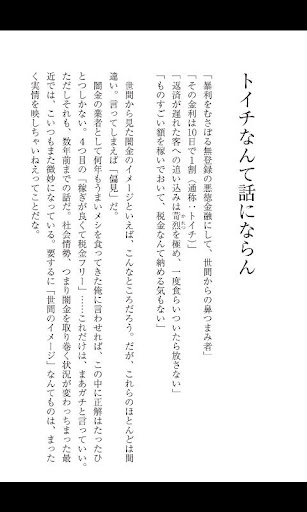 トイチなんて話にならん
「暴利をむさぼる無登録の悪徳金融にして、世間からの鼻つまみ者」
「その金利は10日で1割（通称：トイチ）」
「返済が遅れた客への追い込みは苛烈を極め、一度食らいついたら放さない」
「ものすごい額を稼いでおいて、税金なんて納める気もない」
世間から見た闇金のイメージといえば、こんなところだろう。だが、これらのほとんどは間
違い。言ってしまえば「偏見」だ。
闇金の業者として何年もうまいメシを食ってきた俺に言わせれば、この中に正解はたったひ
とつしかない。4つ目の「稼ぎが良くて税金フリー」……これだけは、まあガチと言っていい。
ただしそれも、数年前までの話だ。社会情勢、つまり闇金を取り巻く状況が変わっちまった最
近では、こいつもまた微妙になっている。要するに「世間のイメージ」なんてものは、まった
く実情を映しちゃいねえってことだな。